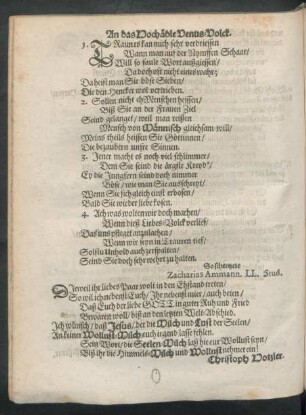 An das Hochädle Venus-Volck.
1. Traun es kan mich sehr verdriessen
Wann man auf der Nymffen Schaar/
Will so faule Wort außgiessen/
Da doch oft nicht eines wahr;
Da heist man Sie böse Sieben/
Die den Hencker wol vertrieben.
2. Sollen nicht Menschen heissen/
Biß Sie an der Frauen Ziel
Seind gelanget/ weil man reissen
Mensch von Männisch gleichsam will/
Meins theils heissen Sie Göttinnen/
Die bezaubern unsre Sinnen.
3. Jener macht es noch viel schlimmer/
Dem Sie seind die ärgste
Ey die Jungfern seind doch nimmer
Böse/ wie man Sie ausschreyt/
Wenn Sie sich gleich einst erbosen/
Bald Sie wieder liebekosen.
4. Ach was wolten wir doch machen/
Wenn dieß Liebes-Volck verlies/
Das uns pfleget anzulachen/
Wenn wir seyn in Trauren tief/
Solst du Unhold auch zerspalten/
Seind Sie doch sehr wehrt zu halten.
So schertzete
Zacharias Ammann, LL. Stud.
Dieweil ihr liebes Paar wolt in den Ehstand treten/
So wil ich an heut Euch/ Ihr nebenst mier/ auch beten/
Daß Euch der liebe GOTT in guter Ruh und Fried
Bewahren woll/ biß an den letzten Welt-Abschied.
Ich wünsch/ daß Jesus/ der die Milch und Lust der Seelen/
An keiner Wollust-Milch euch irgend lasse fehlen.
Sein Wort/ die Seelen-Milch laß hie eur Wollust seyn/
Biß ihr die Himmels-Milch und Wollust nehmet ein!
Christoph Notzler.